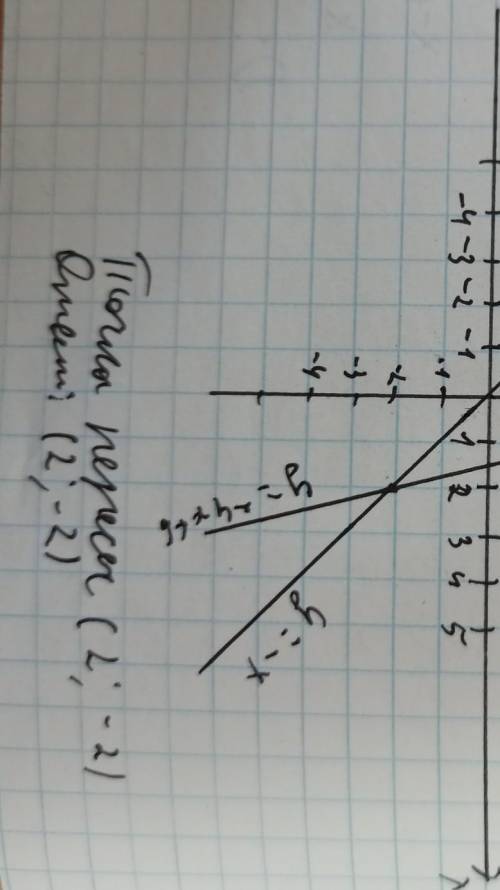 -4 -3 -2 -1 1 2 3 4 5
-1
-2
-3
-4
y = -4x+6
y = -x
Точка пересеч (2; -2)
Ответ: (2; -2)